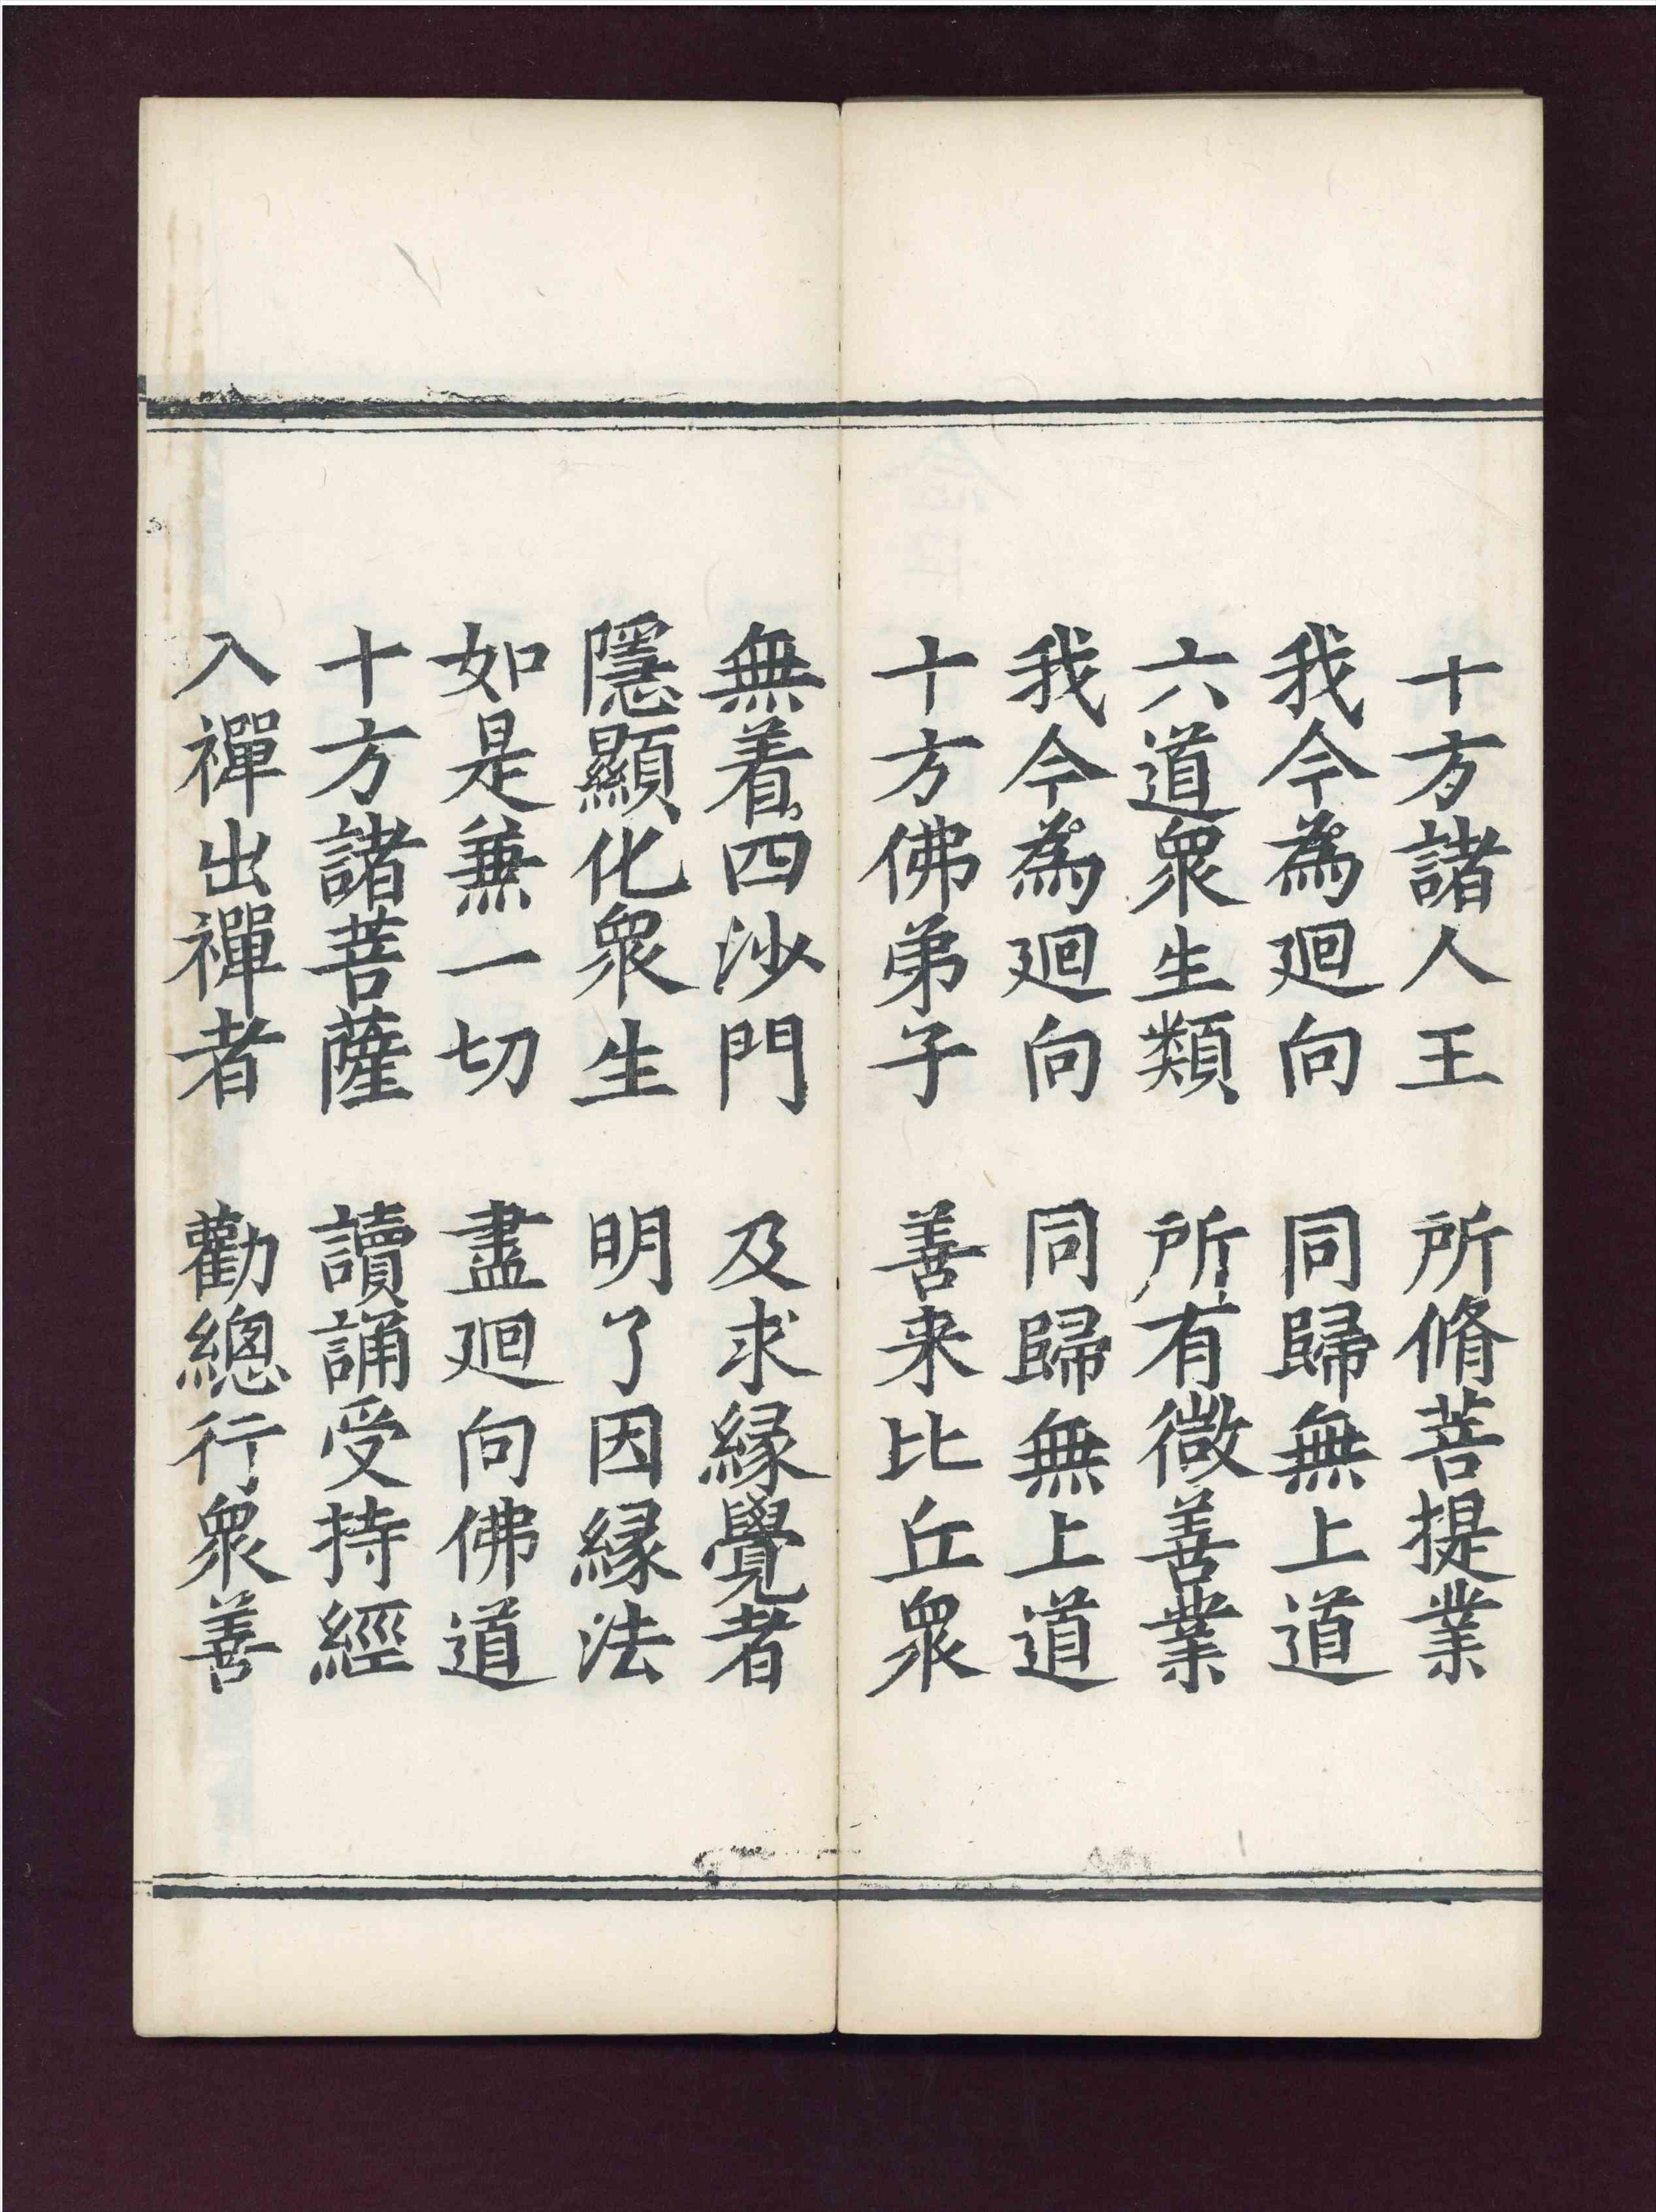 十方諸人王　所脩菩提業
我今為廻向　同歸無上道
六道眾生類　所有微善業
我今為廻向　同歸無上道
十方佛弟子　善来比丘眾
無着四沙門　及求緣覺者
隱顯化眾生　明了因緣法
如是兼一切　盡廻向佛道
十方諸菩薩　讀誦受持經
入禪出禪者　勸總行眾善